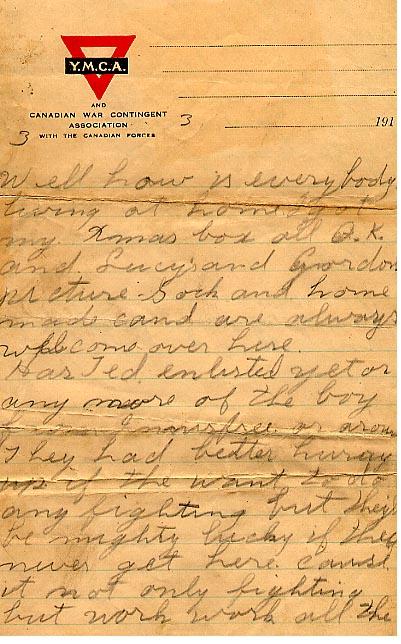 Y.M.C.A.
AND
CANADIAN WAR CONTINGENT
ASSOCIATION
WITH THE CANADIAN FORCES
3
3
191
Well how is everybody
living at home I got
my Xmas box all O.K.
and Lucy's and Gordon
picture. Sock and home
made cand are always
welcome over here.
Has Ted enlisted yet or
any more of the boy
from Innisfree or aroun
They had better hurry
up if the want to do
any fighting but they'l
be mighty lucky if they
never get here cause
it not only fighting
but work work all the